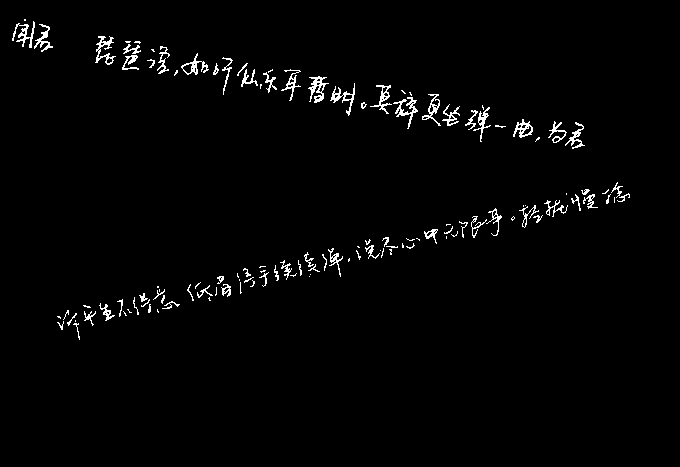 闻君 琵琶语,如听仙乐耳暂明。莫辞更坐弹一曲,为君
诉平生不得意 低眉信手续续弹,说尽心中无限事。轻拢慢捻